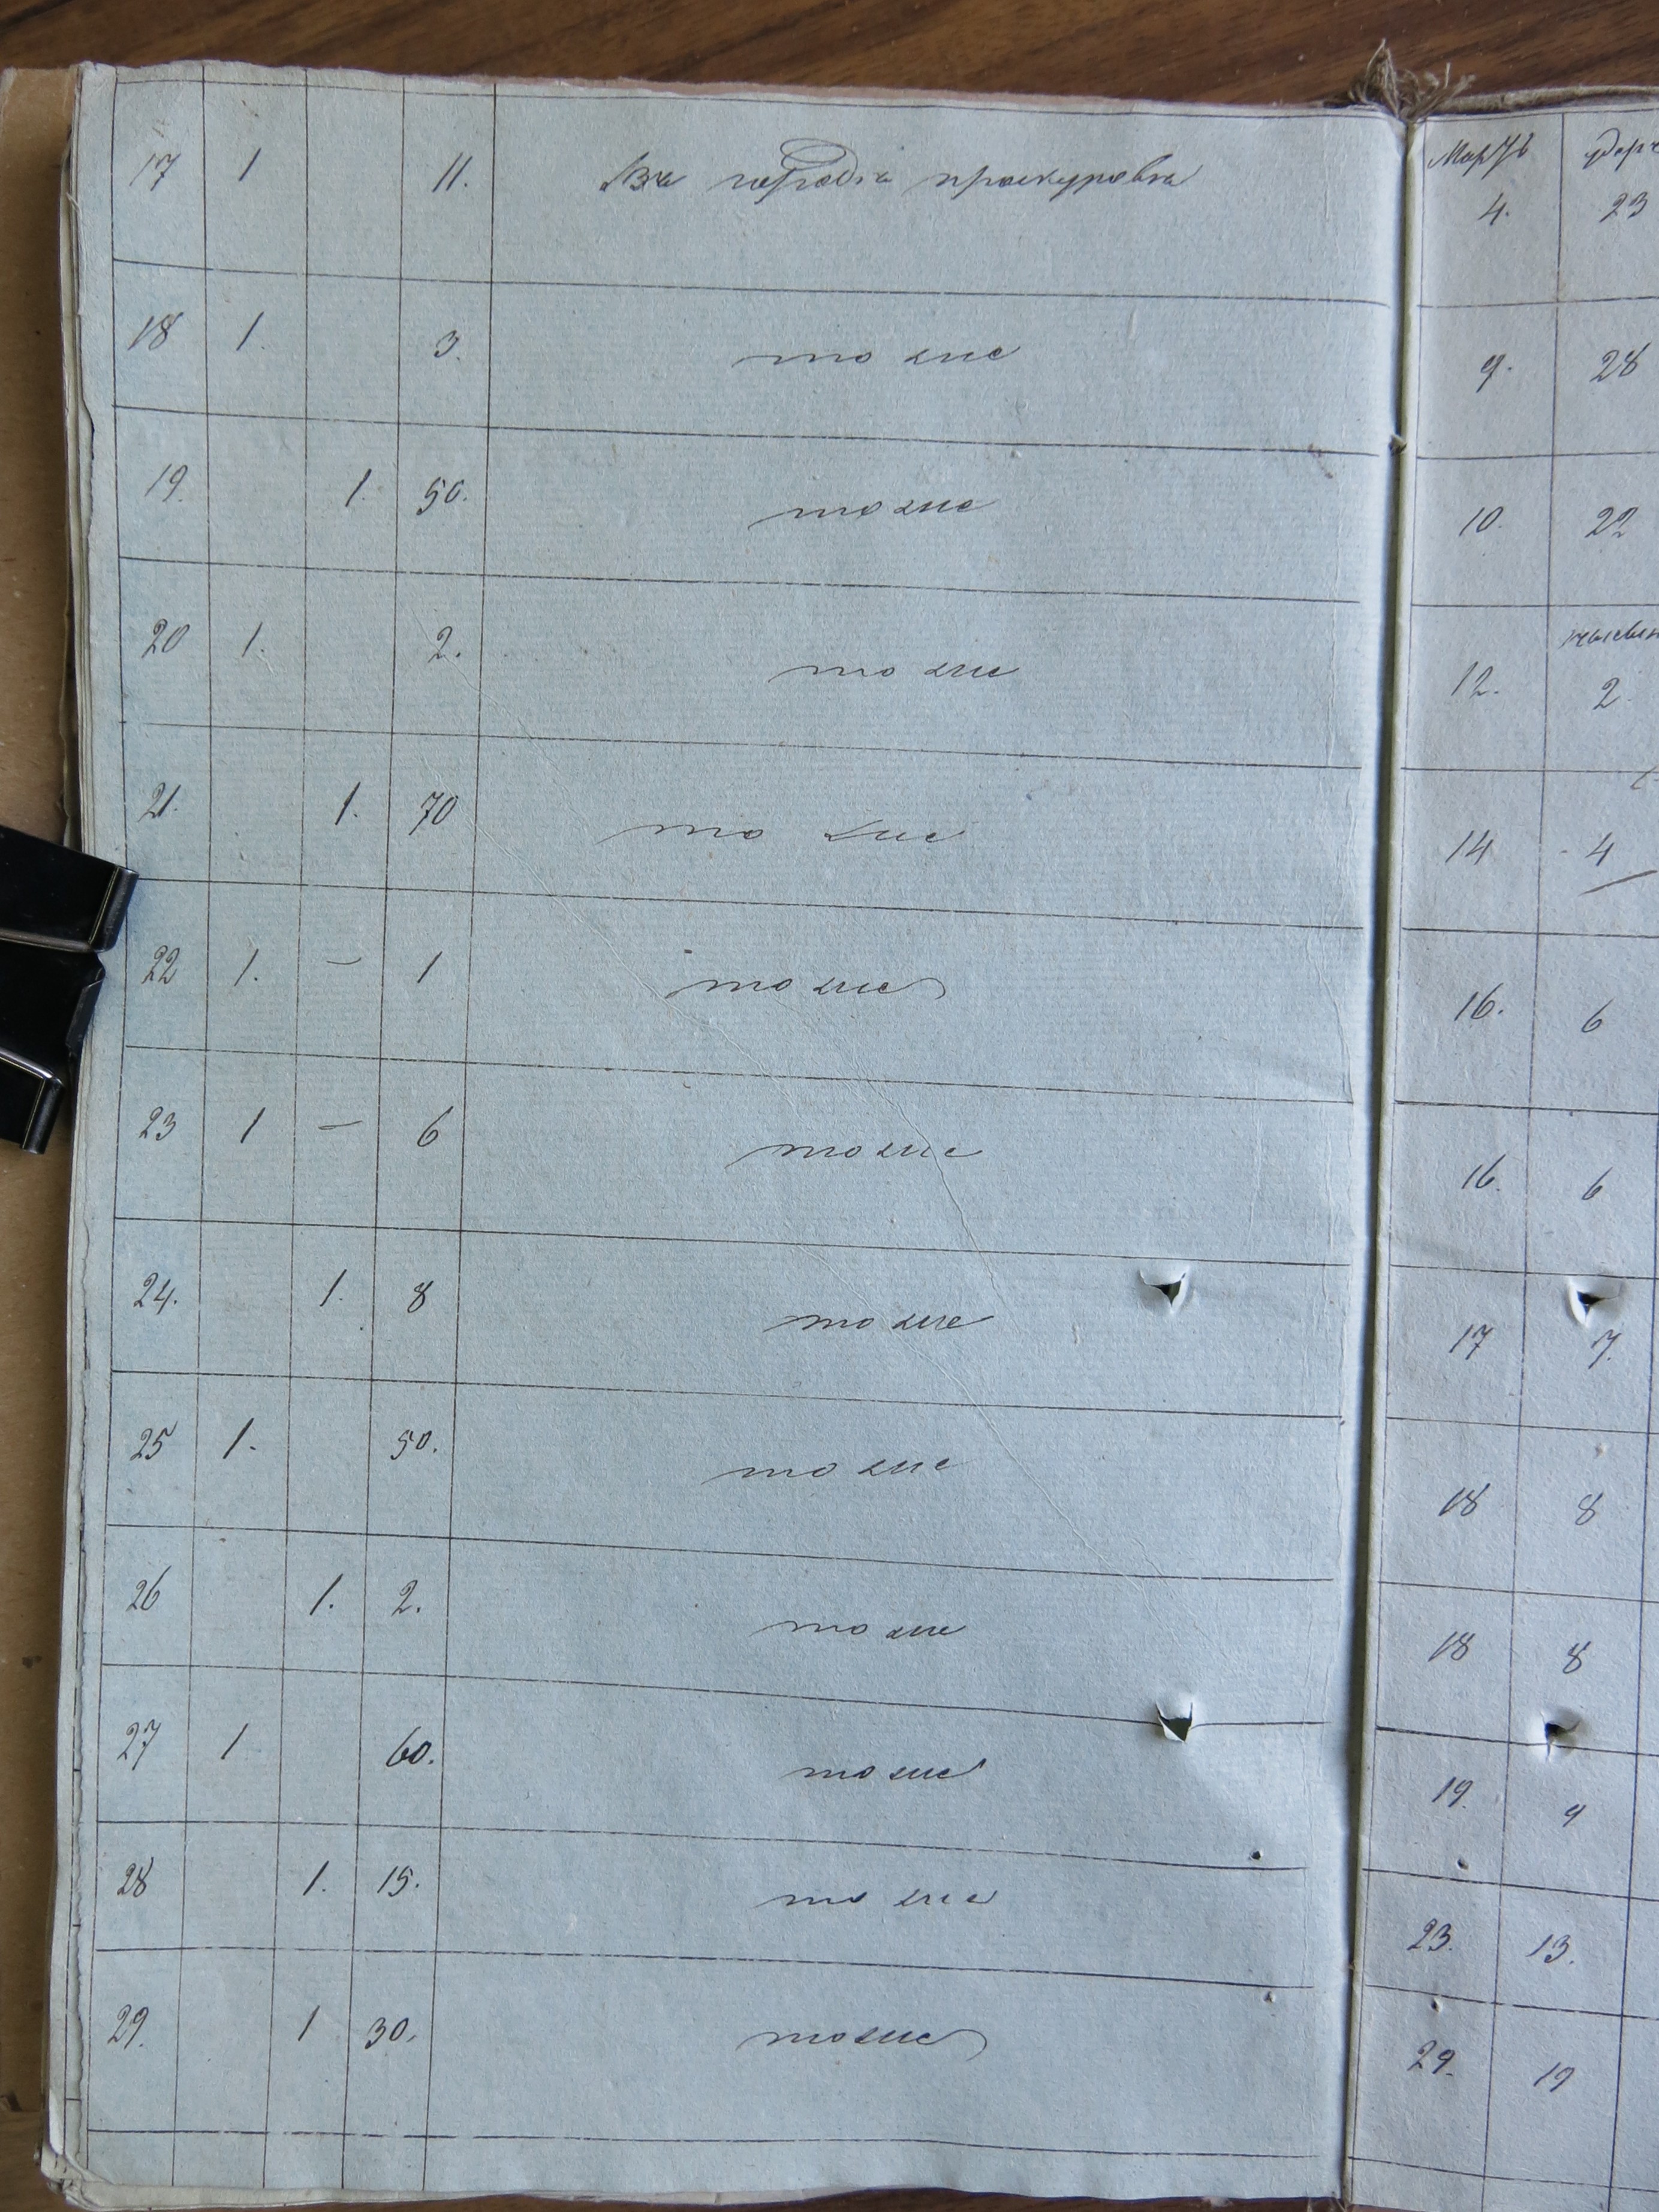 17 1 11. Въ городѣ проскуровѣ
18 1. 3. то же
19. 1. 50. то же
20 1. 2. то же
21. 1. 70 то же
22 1. — 1 то же
23 1 — 6 то же
24. 1. 8 то же
25 1. 50. то же
26 1. 2. то же
27 1 60. то же
28 1. 15. то же
29. 1 30. то же
Мартъ
4. 23
9. 28
10. 22
12. 2.
14 4
16. 6
16. 6
17 7.
18 8
18 8
19. 9
23. 13.
29. 19